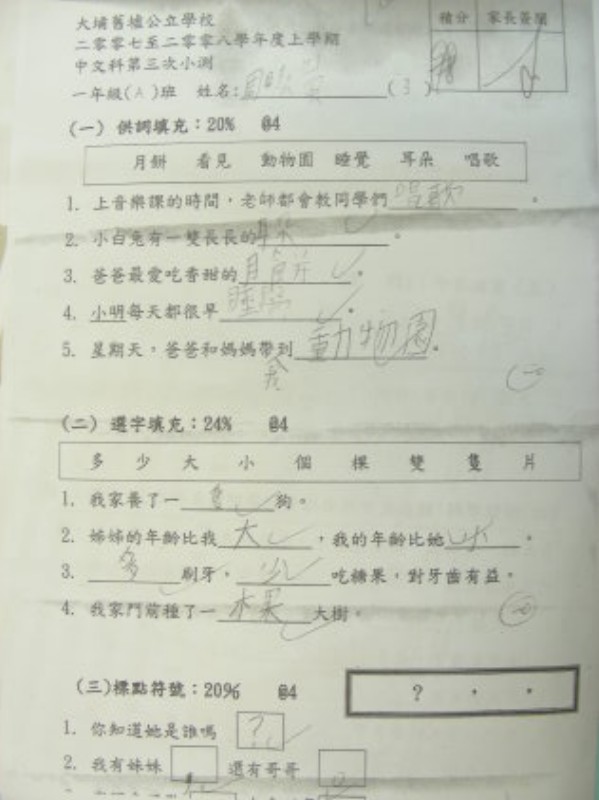 大埔舊墟公立學校
二零零七至二零零八學年度上學期
中文科第三次小測
一年級(A)班 姓名: (3)
積分 家長簽閱
(一) 供詞填充:20% @4
月餅 看見 動物園 睡覺 耳朵 唱歌
1. 上音樂課的時間,老師都會教同學們唱歌。
2. 小白兔有一雙長長的耳朵。
3. 爸爸最愛吃香甜的月餅。
4. 小明每天都很早睡覺。
5. 星期天,爸爸和媽媽帶到動物園。
我
(二) 選字填充:24% @4
多 少 大 小 個 棵 雙 隻 片
1. 我家養了一隻狗。
2. 姊姊的年齡比我大,我的年齡比她小。
3. 多刷牙,少吃糖果,對牙齒有益。
4. 我家門前種了一棵大樹。
(三)標點符號:20% @4
? , 。
1. 你知道她是誰嗎?
2. 我有妹妹 還有哥哥